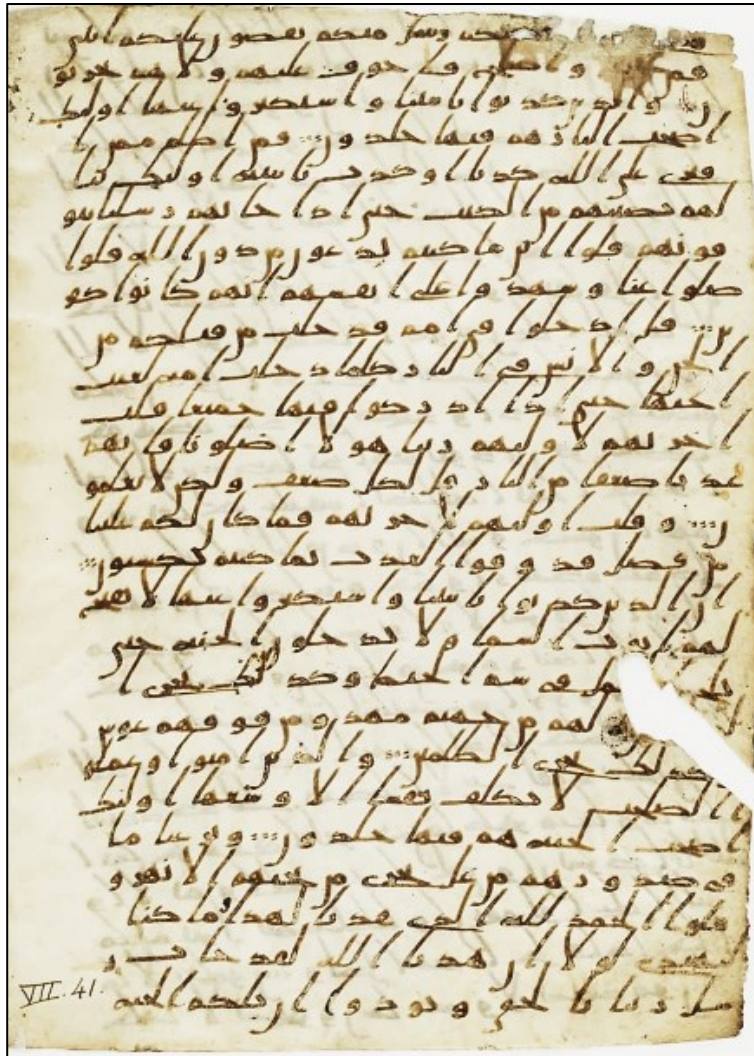 رسل منكم يقصون عليكم ايتي
فمن واصلح فلا خوف عليهم ولا هم يحزنو
ن والذين كذبوا بايتنا واستكبروا عنها اوليك
اصحب النار هم فيها خلدون ؞ فمن اظلم ممن ا
فترى على الله كذبا او كذب بايته اوليك ينا
لهم نصيبهم من الكتب حتى اذا جاتهم رسلنا يتو
فونهم قلوا اين ما كنتم تدعون من دون الله قلوا
ضلوا عنا وشهدوا على انفسهم انهم كانوا كفر
ين ؞ قل ادخلوا في امم قد خلت من قبلكم من
الجن والانس في النار كلما دخلت امه لعنت
اختها حتى اذا اداركوا فيها جميعا قلت
اخريهم لاوليهم ربنا هولا اضلونا فاتهم
عذبا ضعفا من النار قل لكل ضعف ولكن لا تعلمو
ن ؞ وقلت اوليهم لاخريهم فما كان لكم علينا
من فضل فذوقوا العذب بما كنتم تكسبون ؞
ان الذين كذبوا بايتنا واستكبروا عنها لا تفتح
لهم ابوب السما ولا يدخلون الجنه حتى
يلج الجمل في سم الخيط وكذلك نجزي ا
لهم من جهنم مهد ومن فوقهم غوش
وكذلك نجزي الظلمين ؞ والذين امنوا وعملو
ا الصلحت لا نكلف نفسا الا وسعها اوليك
اصحب الجنه هم فيها خلدون ؞ ونزعنا ما
في صدورهم من غل تجري من تحتهم الانهر و
قلوا الحمد لله الذي هدينا لهذا وما كنا
لنهتدي لولا ان هدينا الله لقد جات ر
سل ربنا بالحق ونودوا ان تلكم الجنه
VII. 41.